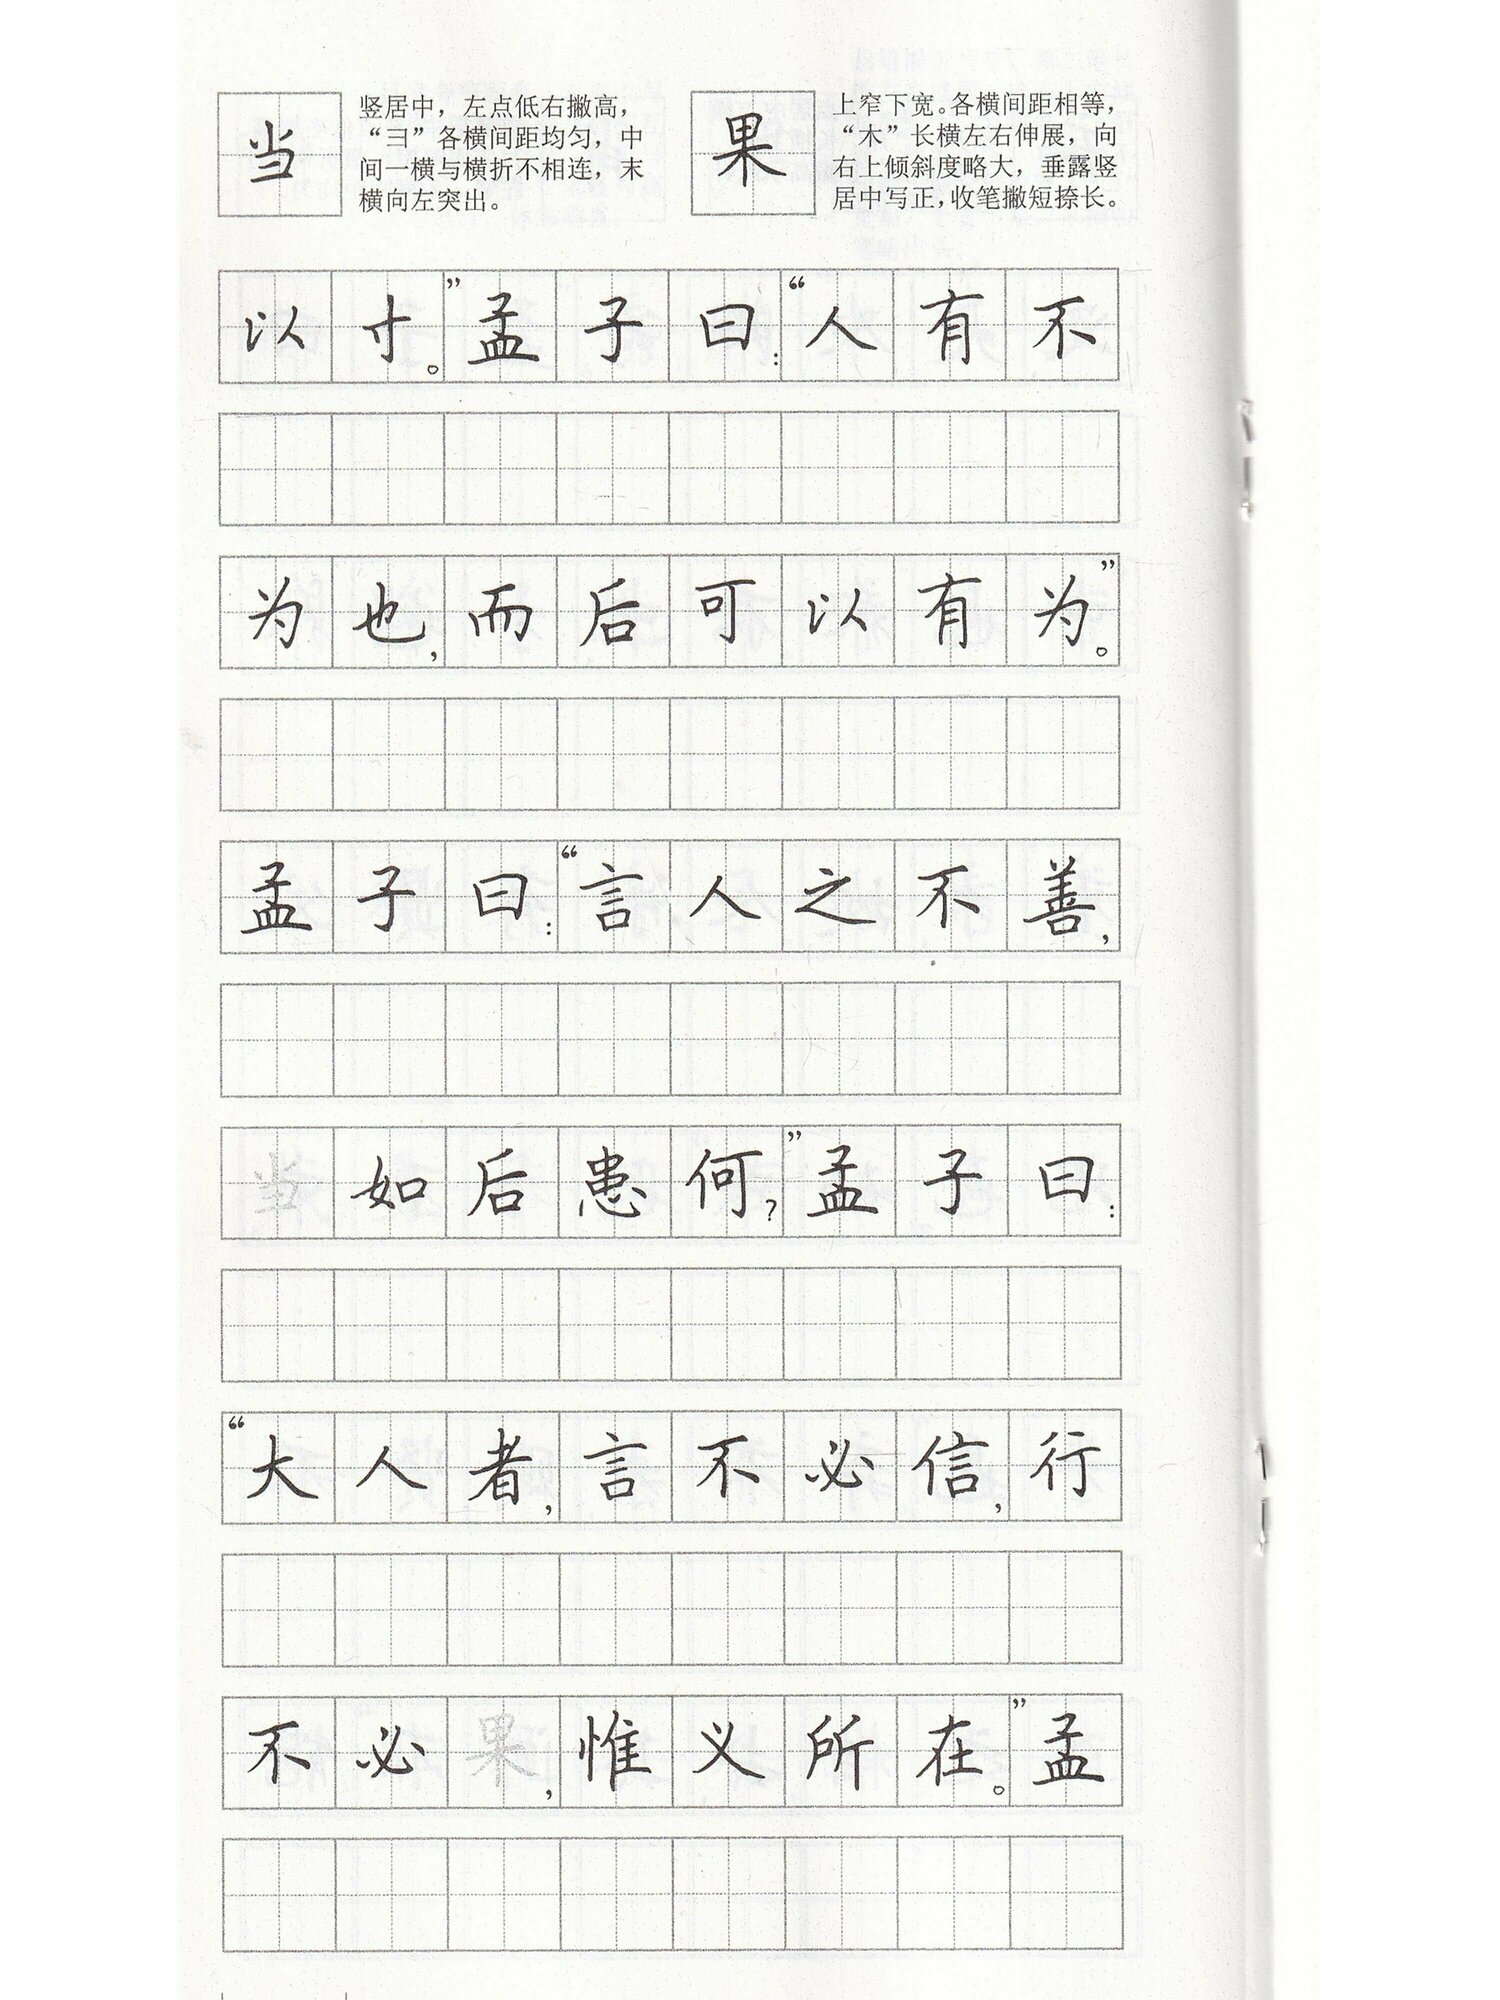 当
竖居中，左点低右撇高，
“彐”各横间距均匀，中
间一横与横折不相连，末
横向左突出。
果
上窄下宽。各横间距相等，
“木”长横左右伸展，向
右上倾斜度略大，垂露竖
居中写正，收笔撇短捺长。
以寸。”孟子曰：“人有不
为也，而后可以有为。”
孟子曰：“言人之不善，
当如后患何？”孟子曰：
“大人者，言不必信，行
不必果，惟义所在。”孟